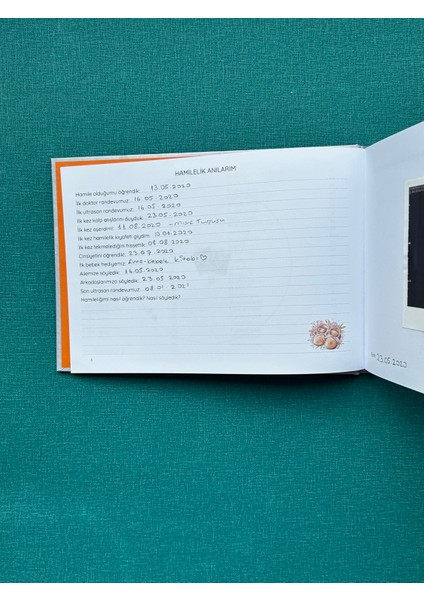 HAMİLELİK ANILARIM
Hamile olduğumu öğrendik: 13.05.2020
İlk doktor randevumuz: 16.05.2020
İlk ultrason randevumuz: 16.05.2020
İlk kez kalp atışlarını duyduk: 23.05.2020
İlk kez aşerdim: 11.08.2020 -
İlk kez hamilelik kıyafeti giydim: 2020
İlk kez tekmelediğini hissettik: 08.08.2020
Cinsiyetini öğrendik: 23.07.2020
İlk bebek hediyemiz: Anne-bebek kitabı♡
Ailemize söyledik: 16.05.2020
Arkadaşlarımıza söyledik: 23.05.2020
Son ultrason randevumuz: 08.01.2021
Hamileliğimi nasıl öğrendik? Nasıl söyledik?
23.05.2020